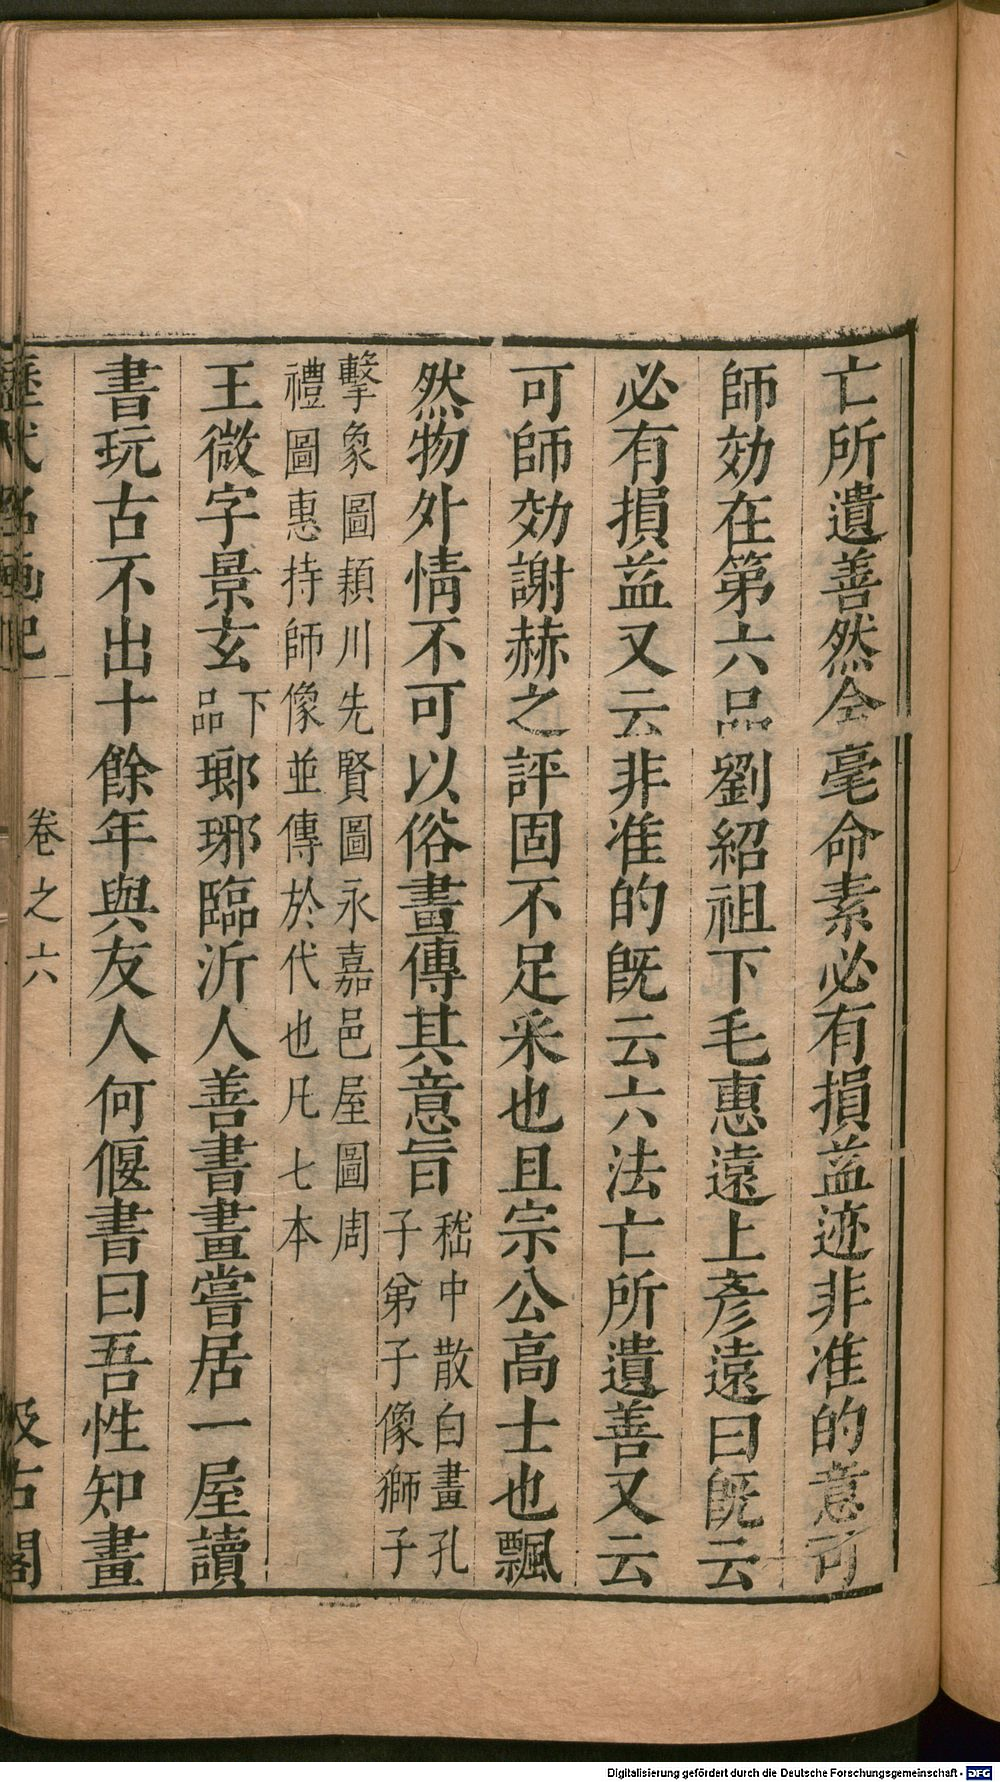 亡所遺善然含毫命素必有損益迹非准的意可
師効在第六品劉紹祖下毛惠遠上彥遠曰旣云
必有損益又云非准的旣云六法亡所遺善又云
可師効謝赫之評固不足采也且宗公高士也飄
然物外情不可以俗畫傳其意旨嵇中散白畫孔
子弟子像獅子
擊象圖穎川先賢圖永嘉邑屋圖周
禮圖惠持師像並傳於代也凡七本
王微字景玄下
品瑯琊臨沂人善書畫嘗居一屋讀
書玩古不出十餘年與友人何偃書曰吾性知畫
歷代名畫記 卷之六 汲古閣
Digitalisierung gefördert durch die Deutsche Forschungsgemeinschaft - DFG